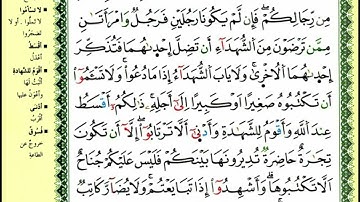 مِن رِّجَالِكُمْ ۖ فَإِن لَّمْ يَكُونَا رَجُلَيْنِ فَرَجُلٌ وَٱمْرَأَتَانِ
مِمَّن تَرْضَوْنَ مِنَ ٱلشُّهَدَآءِ أَن تَضِلَّ إِحْدَىٰهُمَا فَتُذَكِّرَ
إِحْدَىٰهُمَا ٱلْأُخْرَىٰ ۚ وَلَا يَأْبَ ٱلشُّهَدَآءُ إِذَا مَا دُعُوا۟ ۚ وَلَا تَسْـَٔمُوٓا۟
أَن تَكْتُبُوهُ صَغِيرًا أَوْ كَبِيرًا إِلَىٰٓ أَجَلِهِۦ ۚ ذَٰلِكُمْ أَقْسَطُ
عِندَ ٱللَّهِ وَأَقْوَمُ لِلشَّهَـٰدَةِ وَأَدْنَىٰٓ أَلَّا تَرْتَابُوٓا۟ ۖ إِلَّآ أَن تَكُونَ
تِجَـٰرَةً حَاضِرَةً تُدِيرُونَهَا بَيْنَكُمْ فَلَيْسَ عَلَيْكُمْ جُنَاحٌ
أَلَّا تَكْتُبُوهَا ۗ وَأَشْهِدُوٓا۟ إِذَا تَبَايَعْتُمْ ۚ وَلَا يُضَآرَّ كَاتِبٌ
لا تسأموا
لا تملّوا . أو لا
تضجروا
أقسط
أعدل
أقوم للشهادة
أثبت لها
وأعون عليها
أدنى
أقرب
فسوق
خروج عن
الطاعة